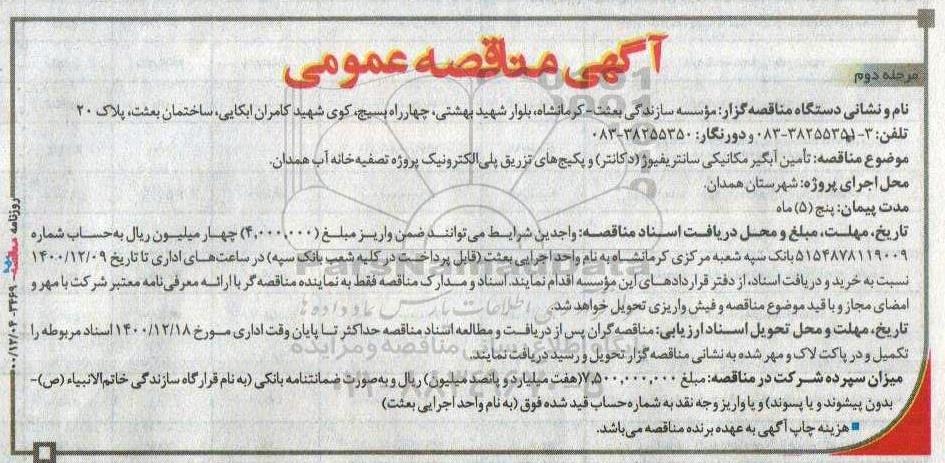 آگهی مناقصه عمومی
مرحله دوم
نام و نشانی دستگاه مناقصه‌گزار: مؤسسه سازندگی بعثت - کرمانشاه، بلوار شهید بهشتی، چهارراه بسیج، کوی شهید کامران ابکایی، ساختمان بعثت، پلاک ۲۰
تلفن: ۳-۳۸۲۵۵۳۵۱-۰۸۳ و دورنگار: ۳۸۲۵۵۳۵۰-۰۸۳
موضوع مناقصه: تأمین آبگیر مکانیکی سانتریفیوژ (دکانتر) و پکیج‌های تزریق پلی‌الکترونیک پروژه تصفیه‌خانه آب همدان.
محل اجرای پروژه: شهرستان همدان.
مدت پیمان: پنج (۵) ماه
تاریخ، مهلت، مبلغ و محل دریافت اسناد مناقصه: واجدین شرایط می‌توانند ضمن واریز مبلغ (۴,۰۰۰,۰۰۰) چهار میلیون ریال به‌حساب شماره
۵۱۵۴۸۷۸۱۱۹۰۰۹ بانک سپه شعبه مرکزی کرمانشاه به نام واحد اجرایی بعثت (قابل پرداخت در کلیه شعب بانک سپه) در ساعت‌های اداری تا تاریخ ۱۴۰۰/۱۲/۰۹
نسبت به خرید و دریافت اسناد، از دفتر قراردادهای این مؤسسه اقدام نمایند. اسناد و مدارک مناقصه فقط به نماینده مناقصه‌گر با ارائه معرفی‌نامه معتبر شرکت با مهر و
امضای مجاز و با قید موضوع مناقصه و فیش واریزی تحویل خواهد شد.
تاریخ، مهلت و محل تحویل اسناد ارزیابی: مناقصه‌گران پس از دریافت و مطالعه اسناد مناقصه حداکثر تا پایان وقت اداری مورخ ۱۴۰۰/۱۲/۱۸ اسناد مربوطه را
تکمیل و در پاکت لاک و مهر شده به نشانی مناقصه گزار تحویل و رسید دریافت نمایند.
میزان سپرده شرکت در مناقصه: مبلغ ۷,۵۰۰,۰۰۰,۰۰۰(هفت میلیارد و پانصد میلیون) ریال و به‌صورت ضمانتنامه بانکی (به نام قرارگاه سازندگی خاتم‌الانبیاء (ص)-
بدون پیشوند و یا پسوند) و یا واریز وجه نقد به شماره‌حساب قید شده فوق (به نام واحد اجرایی بعثت)
هزینه چاپ آگهی به عهده برنده مناقصه می‌باشد.
ParsNamadData
پایگاه اطلاع رسانی مناقصه و مزایده